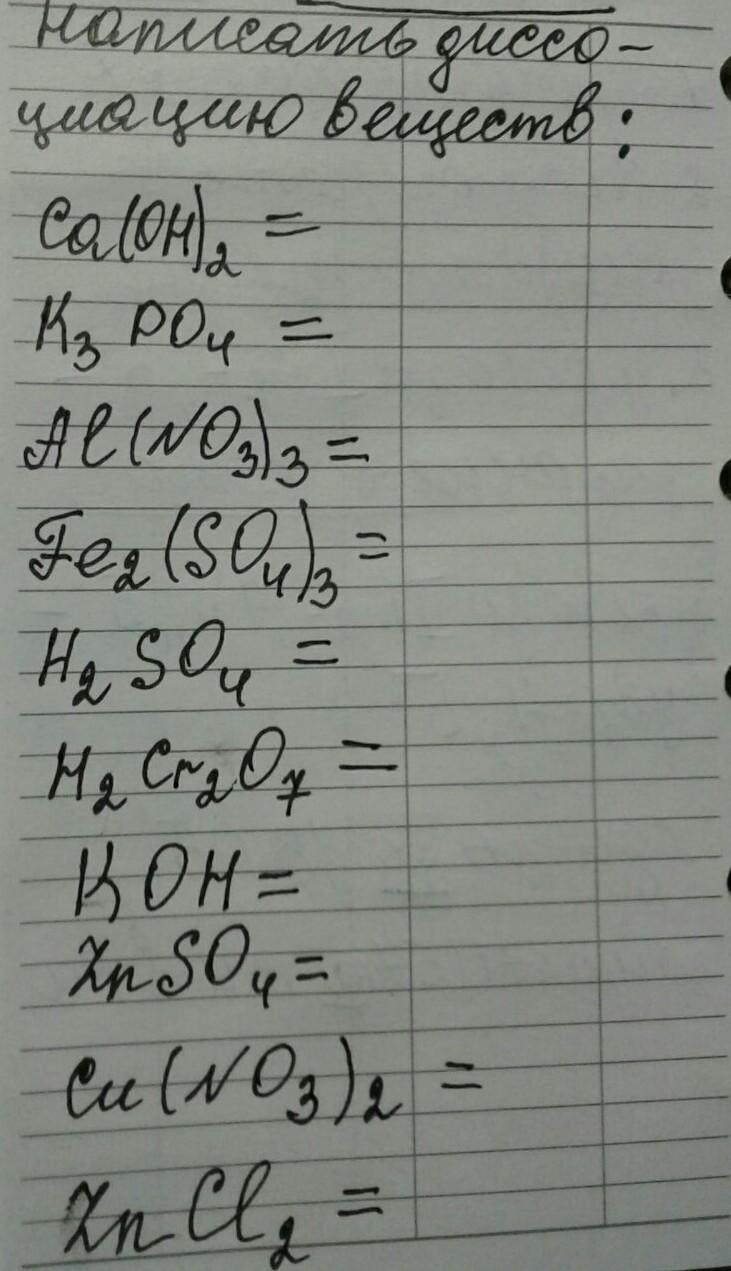 Написать диссо-
циацию веществ:
Ca(OH)₂ =
K₃PO₄ =
Al(NO₃)₃ =
Fe₂(SO₄)₃ =
H₂SO₄ =
H₂Cr₂O₇ =
KOH =
ZnSO₄ =
Cu(NO₃)₂ =
ZnCl₂ =